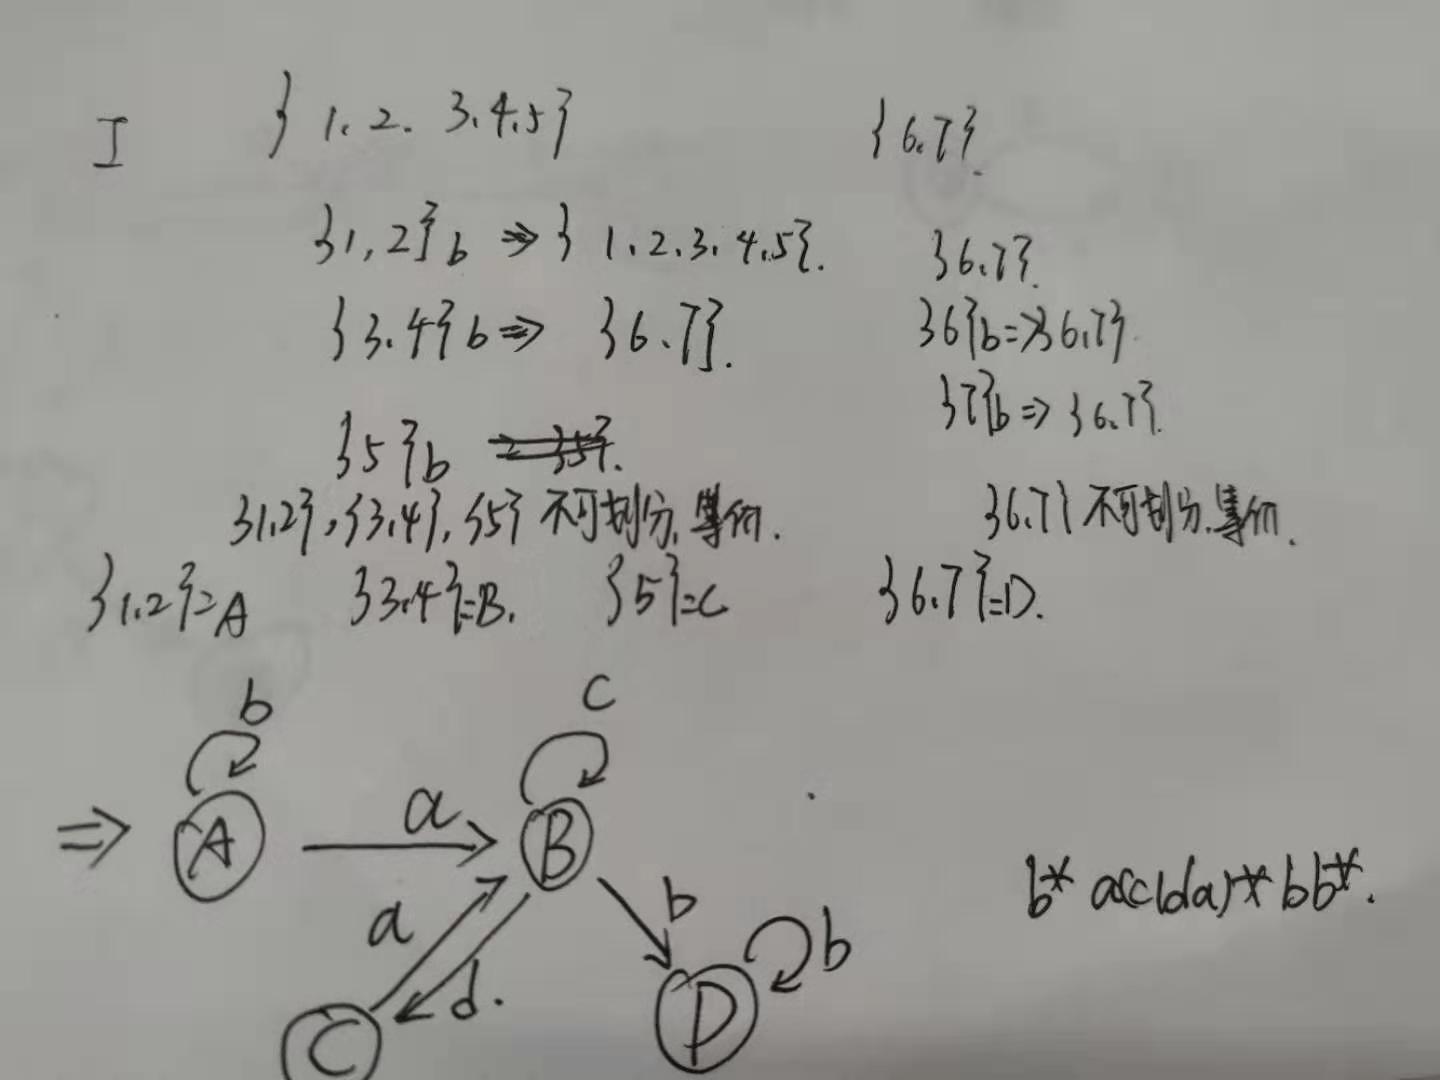 I {1.2.3.4.5} {6.7}.
{1,2}b => {1.2.3.4.5}. {6.7}.
{3.4}b => {6.7}. {6}b => {6.7}.
{5}b {7}b => {6.7}.
{1.2}, {3.4}, {5} 不可划分, 等价. {6.7} 不可划分, 等价.
{1.2}=A {3.4}=B. {5}=C {6.7}=D.
b c
=> A a B
b* a(c|da)* bb*.
a d. b b
C D